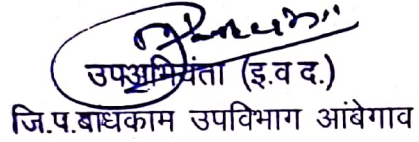 उपअभियंता (इ.व द.)
जि.प.बांधकाम उपविभाग आंबेगाव